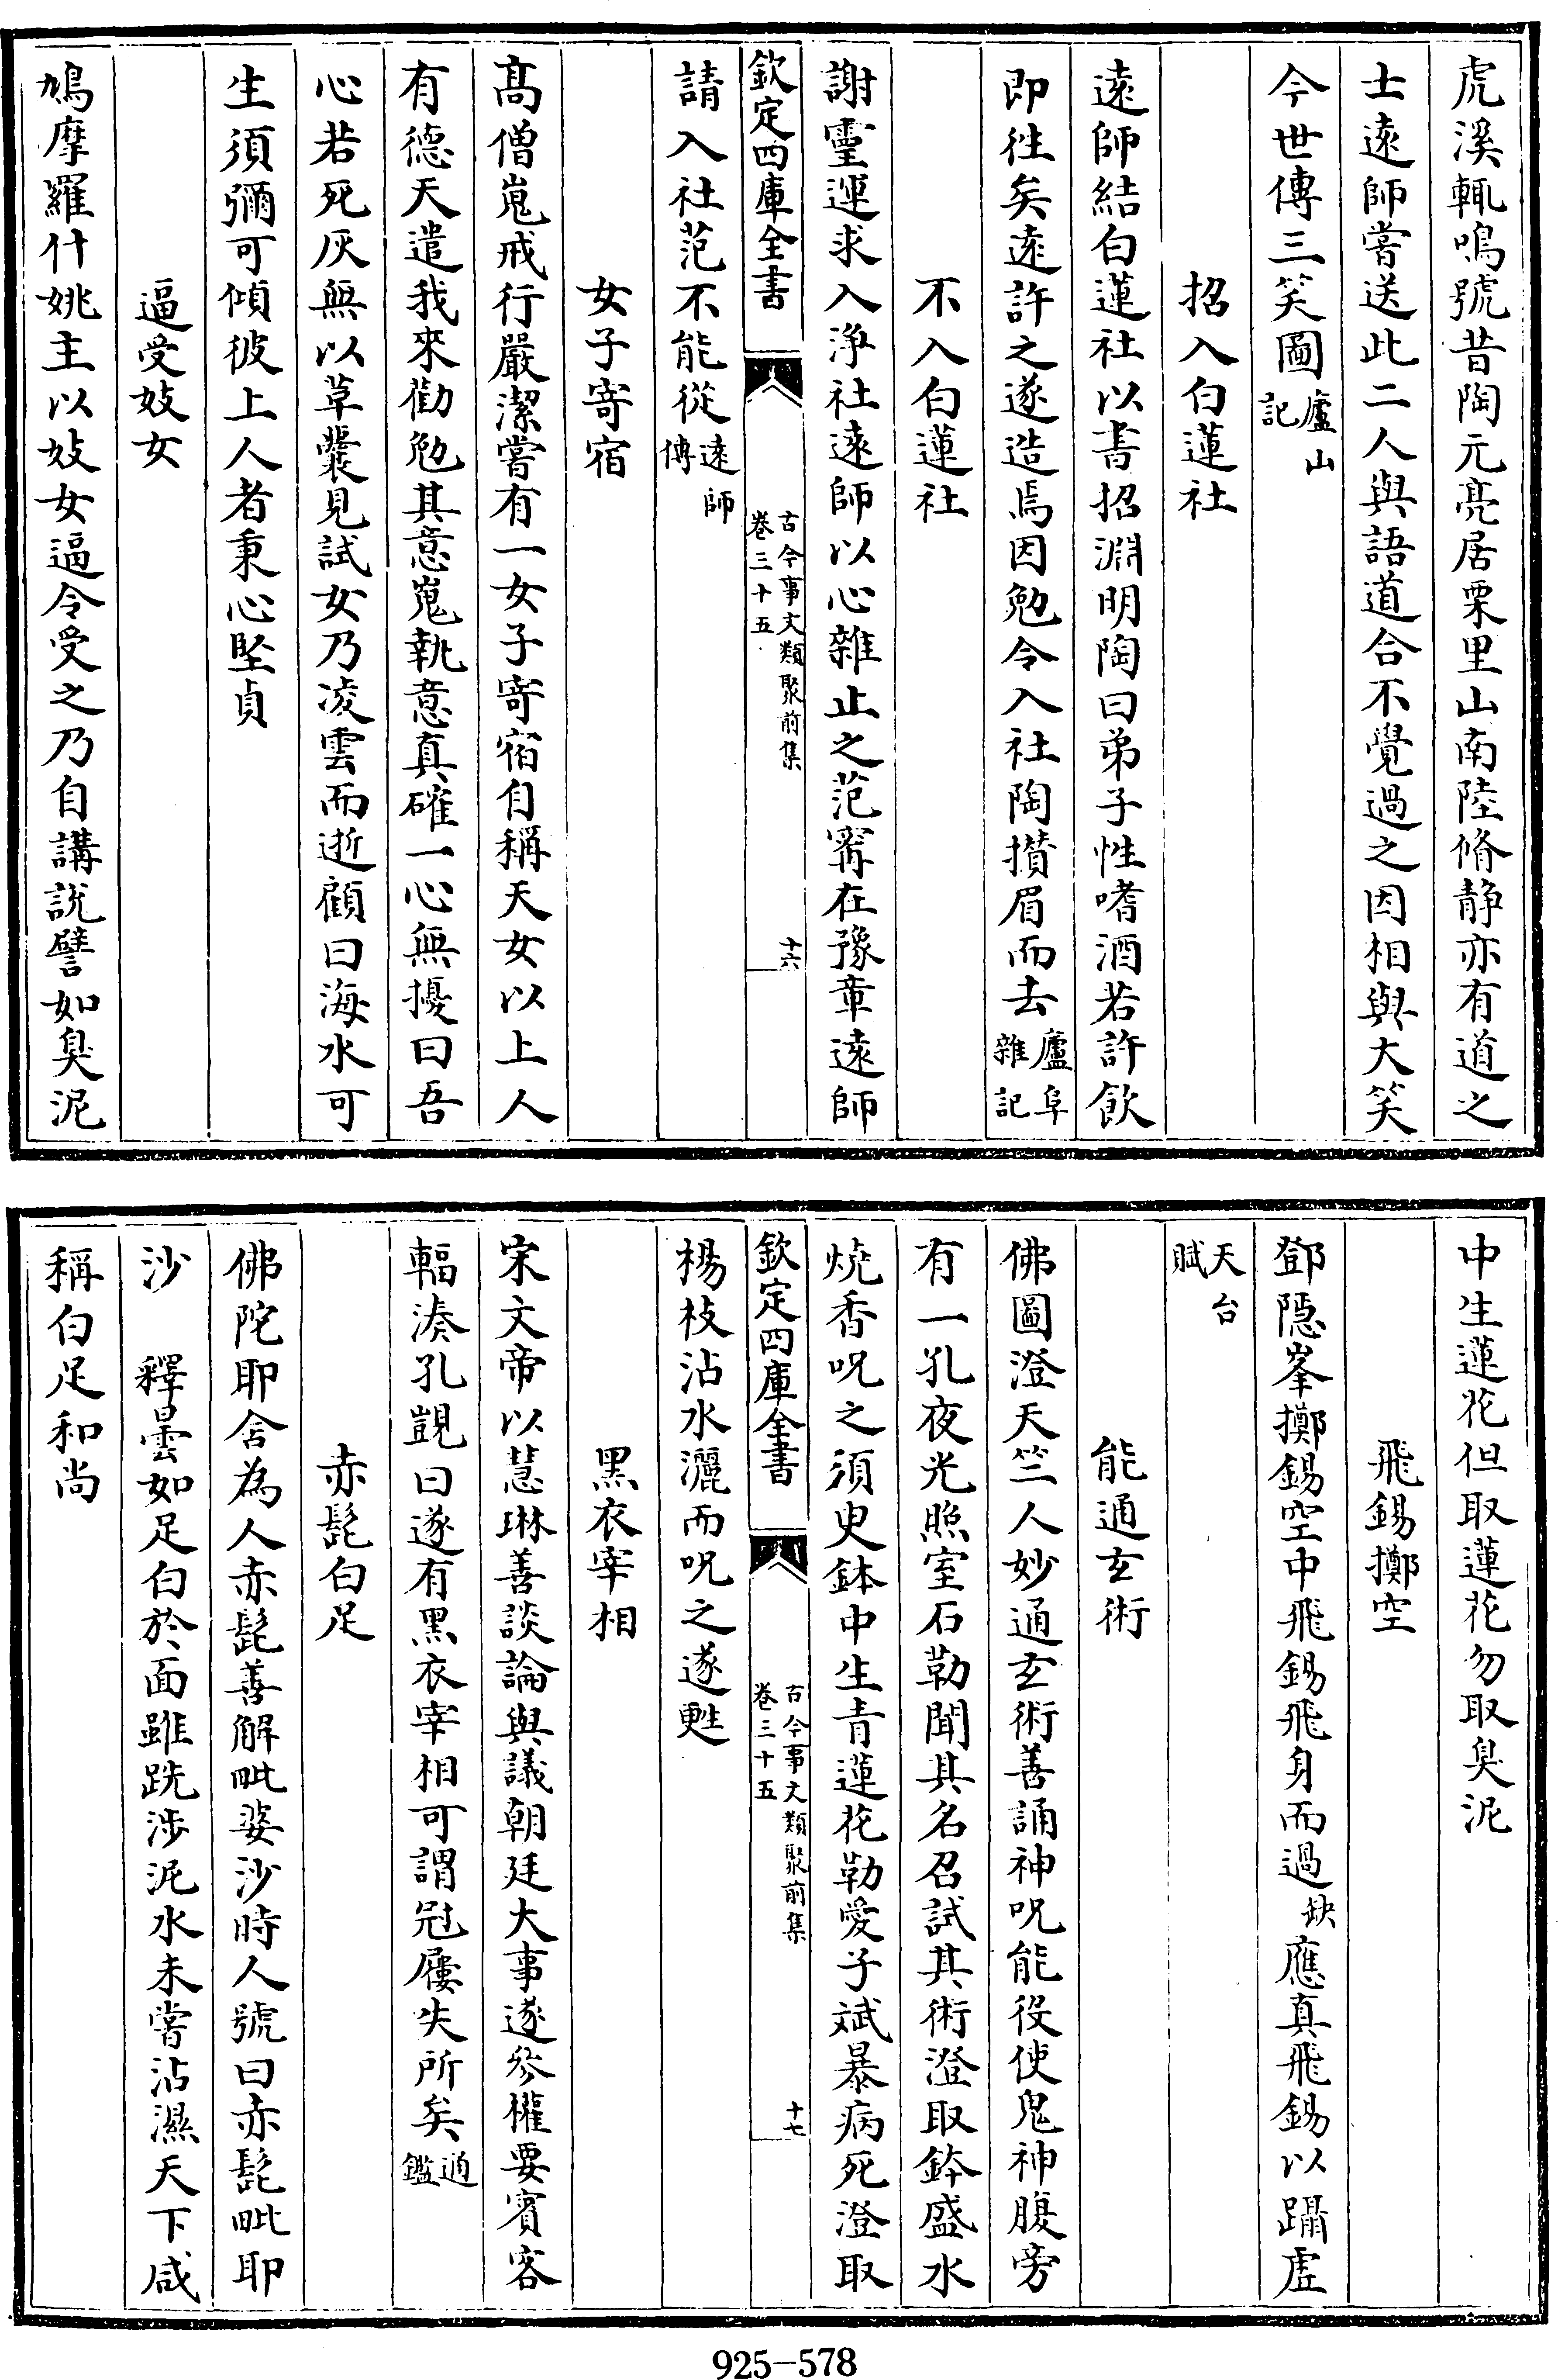 虎溪輒鳴號昔陶元亮居栗里山南陸脩静亦有道之
士遠師嘗送此二人與語道合不覺過之因相與大笑
今世傳三笑圖廬山記
招入白蓮社
遠師結白蓮社以書招淵明陶曰弟子性嗜酒若許飲
即徃矣遠許之遂造焉因勉令入社陶攅眉而去廬阜雜記
不入白蓮社
謝靈運求入淨社遠師以心雜止之范寗在豫章遠師
欽定四庫全書 古今事文類聚前集 卷三十五 十六
請入社范不能從遠師傳
女子寄宿
髙僧嵬戒行嚴潔嘗有一女子寄宿自稱天女以上人
有德天遣我來勸勉其意嵬執意真確一心無擾曰吾
心若死灰無以革囊見試女乃凌雲而逝顧曰海水可
生須彌可傾彼上人者秉心堅貞
逼受妓女
鳩摩羅什姚主以妓女逼令受之乃自講說譬如臭泥
中生蓮花但取蓮花勿取臭泥
飛錫擲空
鄧隱峯擲錫空中飛錫飛身而過缺應真飛錫以躡虛
天台賦
能通玄術
佛圖澄天竺人妙通玄術善誦神呪能役使鬼神腹旁
有一孔夜光照室石勒聞其名召試其術澄取鉢盛水
燒香呪之須臾鉢中生青蓮花勒愛子斌暴病死澄取
欽定四庫全書 古今事文類聚前集 卷三十五 十七
楊枝沾水灑而呪之遂甦
黑衣宰相
宋文帝以慧琳善談論與議朝廷大事遂參權要賓客
輻湊孔覬曰遂有黑衣宰相可謂冠屨失所矣通鑑
赤髭白足
佛陀耶舍為人赤髭善解毗婆沙時人號曰赤髭毗耶
沙 釋曇如足白於面雖跣涉泥水未嘗沾濕天下咸
稱白足和尚
925-578